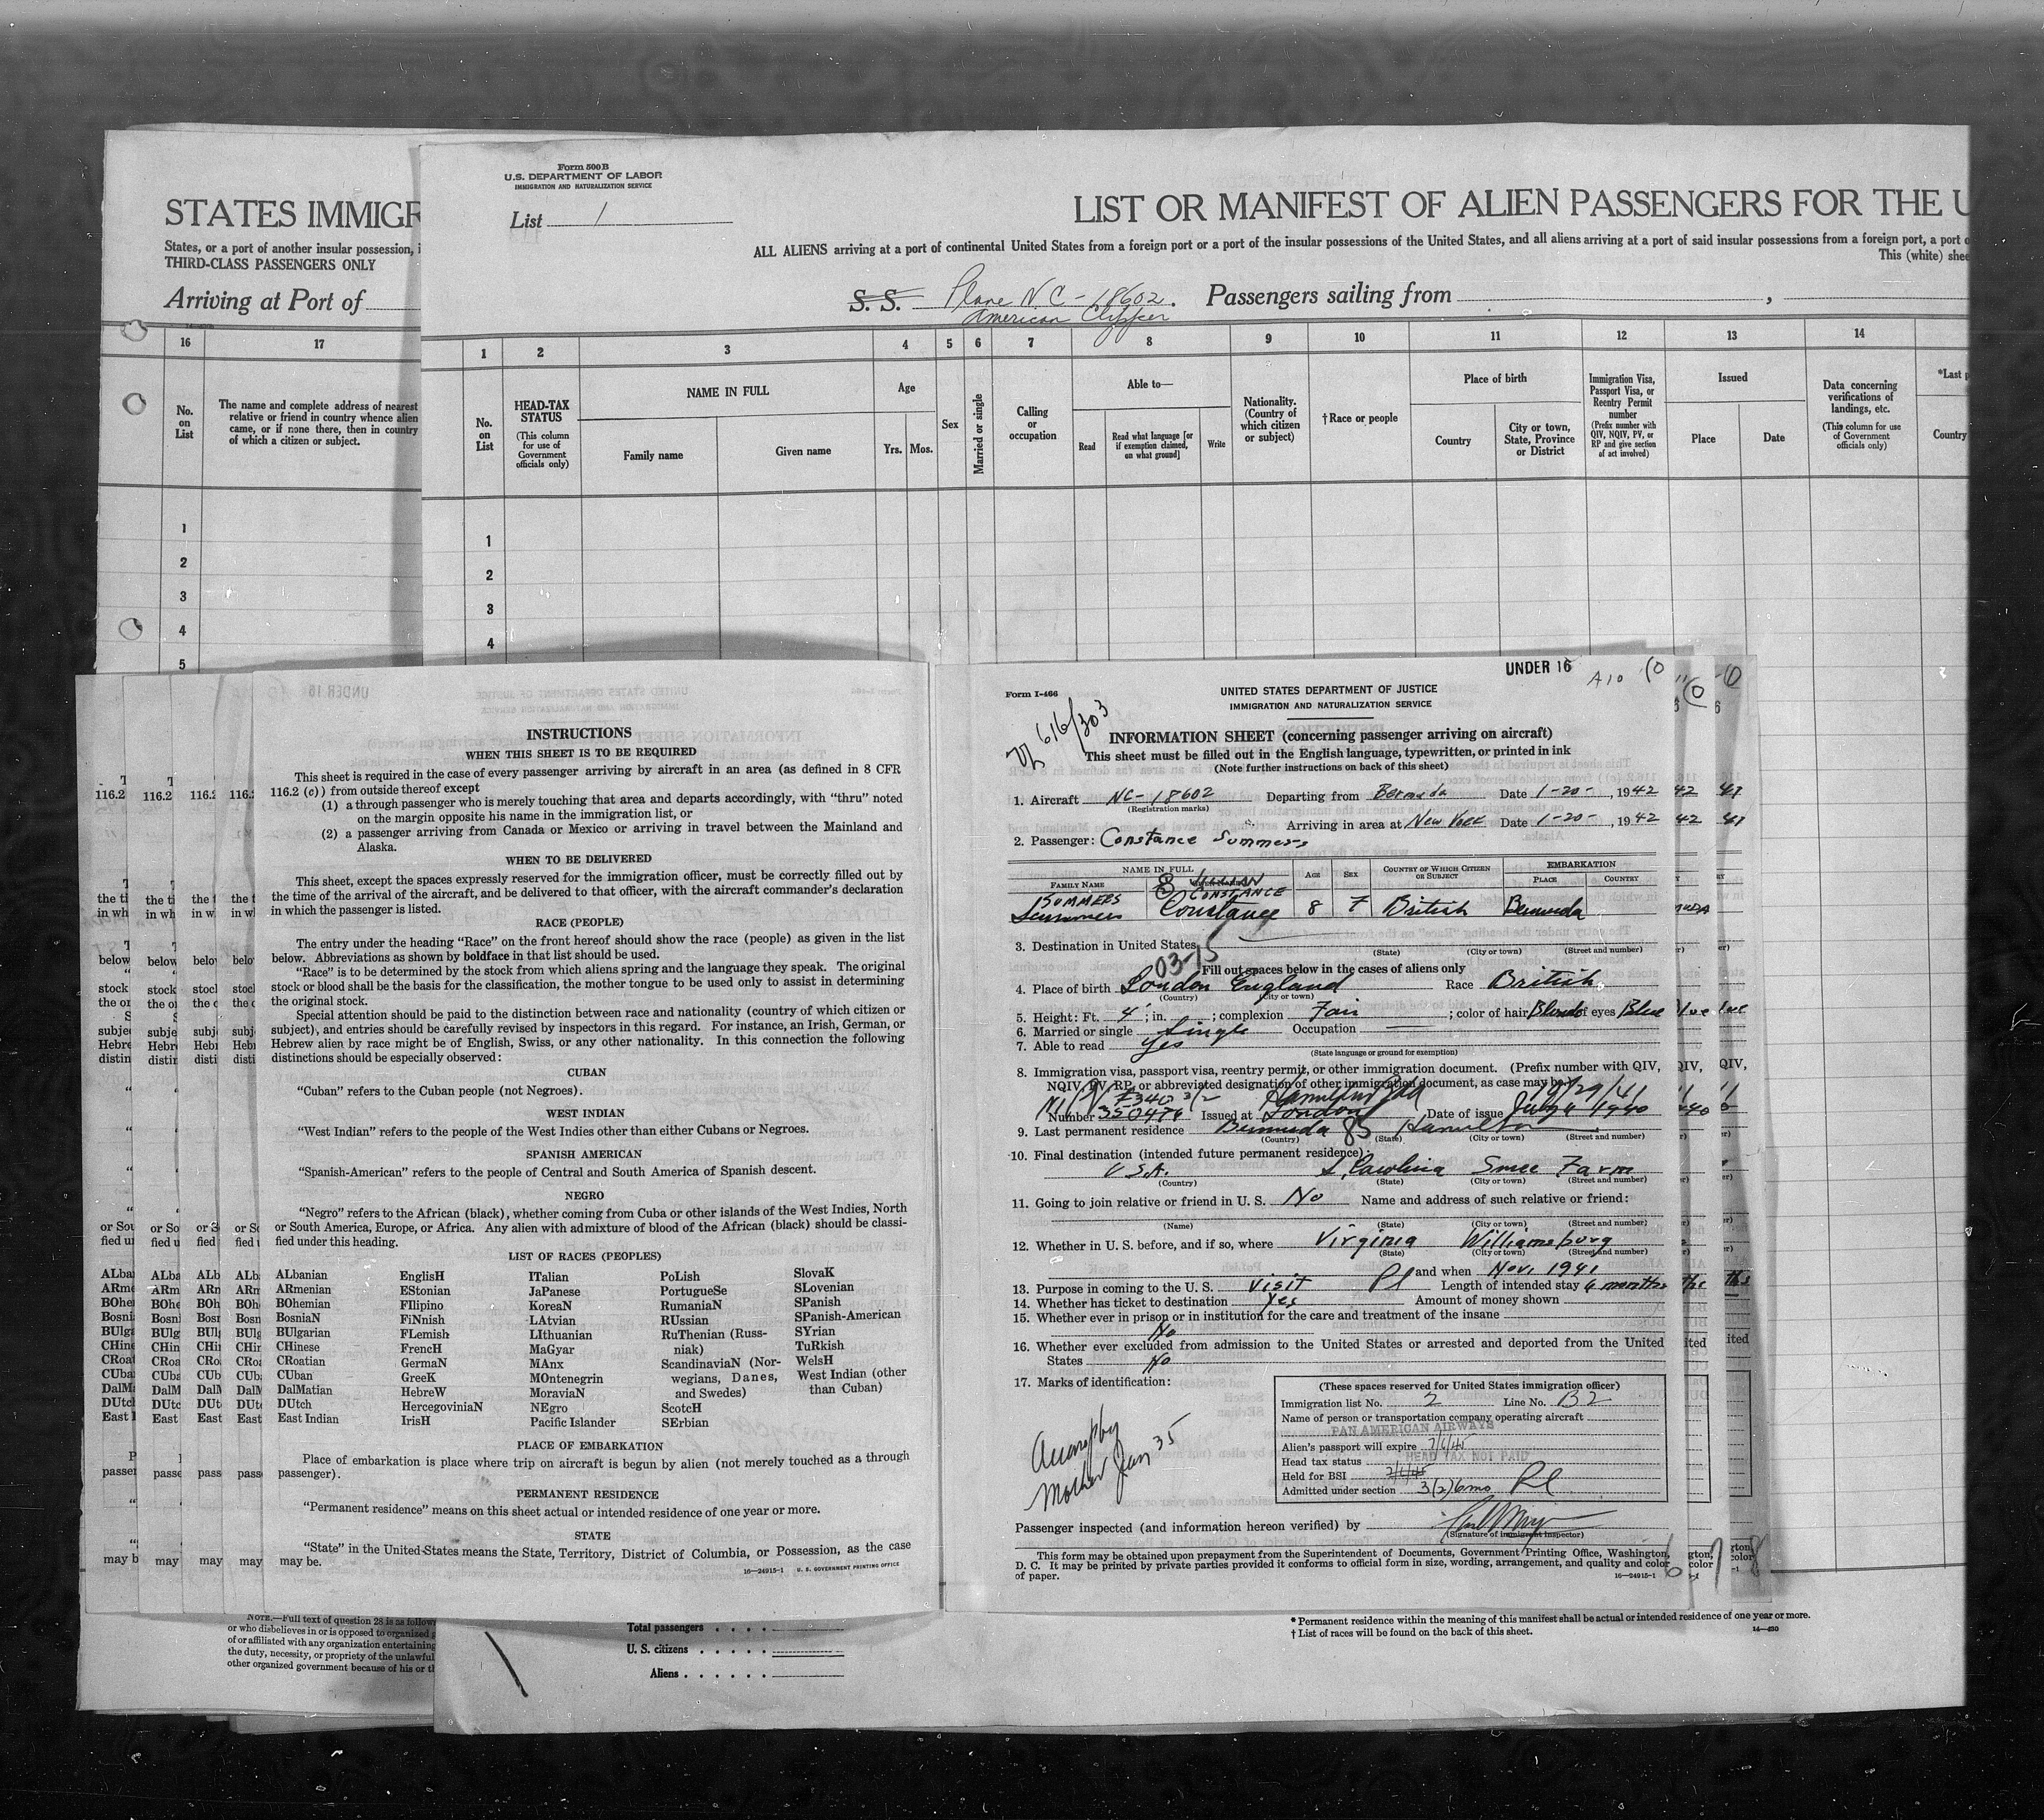 STATES IMMIGR
States, or a port of another insular possession, i
THIRD-CLASS PASSENGERS ONLY
Arriving at Port of
16 17
No. on List
The name and complete address of nearest
relative or friend in country whence alien
came, or if none there, then in country
of which a citizen or subject.
1
2
3
4
5
Form 500 B
U.S. DEPARTMENT OF LABOR
IMMIGRATION AND NATURALIZATION SERVICE
List 1
LIST OR MANIFEST OF ALIEN PASSENGERS FOR THE U
ALL ALIENS arriving at a port of continental United States from a foreign port or a port of the insular possessions of the United States, and all aliens arriving at a port of said insular possessions from a foreign port, a port o
This (white) shee
S. S. Plane NC-18602. Passengers sailing from ,
American Clipper
1 2 3 4 5 6 7 8 9 10 11 12 13 14
No. on List
HEAD-TAX STATUS
(This column for use of Government officials only)
NAME IN FULL
Family name Given name
Age
Yrs. Mos.
Sex
Married or single
Calling or occupation
Able to—
Read
Read what language [or if exemption claimed, on what ground]
Write
Nationality. (Country of which citizen or subject)
†Race or people
Place of birth
Country
City or town, State, Province or District
Immigration Visa, Passport Visa, or Reentry Permit number
(Prefix number with QIV, NQIV, PV, or RP and give section of act involved)
Issued
Place Date
Data concerning verifications of landings, etc.
(This column for use of Government officials only)
*Last p
Country
1
2
3
4
INSTRUCTIONS
WHEN THIS SHEET IS TO BE REQUIRED
This sheet is required in the case of every passenger arriving by aircraft in an area (as defined in 8 CFR
116.2 (c)) from outside thereof except
(1) a through passenger who is merely touching that area and departs accordingly, with “thru” noted
on the margin opposite his name in the immigration list, or
(2) a passenger arriving from Canada or Mexico or arriving in travel between the Mainland and
Alaska.
WHEN TO BE DELIVERED
This sheet, except the spaces expressly reserved for the immigration officer, must be correctly filled out by
the time of the arrival of the aircraft, and be delivered to that officer, with the aircraft commander’s declaration
in which the passenger is listed.
RACE (PEOPLE)
The entry under the heading “Race” on the front hereof should show the race (people) as given in the list
below. Abbreviations as shown by boldface in that list should be used.
“Race” is to be determined by the stock from which aliens spring and the language they speak. The original
stock or blood shall be the basis for the classification, the mother tongue to be used only to assist in determining
the original stock.
Special attention should be paid to the distinction between race and nationality (country of which citizen or
subject), and entries should be carefully revised by inspectors in this regard. For instance, an Irish, German, or
Hebrew alien by race might be of English, Swiss, or any other nationality. In this connection the following
distinctions should be especially observed:
CUBAN
“Cuban” refers to the Cuban people (not Negroes).
WEST INDIAN
“West Indian” refers to the people of the West Indies other than either Cubans or Negroes.
SPANISH AMERICAN
“Spanish-American” refers to the people of Central and South America of Spanish descent.
NEGRO
“Negro” refers to the African (black), whether coming from Cuba or other islands of the West Indies, North
or South America, Europe, or Africa. Any alien with admixture of blood of the African (black) should be classi-
fied under this heading.
LIST OF RACES (PEOPLES)
ALbanian
ARmenian
BOhemian
BosniaN
BUlgarian
CHinese
CRoatian
CUban
DalMatian
DUtch
East Indian
EnglisH
EStonian
FIlipino
FiNnish
FLemish
FrencH
GermaN
GreeK
HebreW
HercegoviniaN
IrisH
ITalian
JaPanese
KoreaN
LAtvian
LIthuanian
MaGyar
MAnx
MOntenegrin
MoraviaN
NEgro
Pacific Islander
PoLish
PortugueSe
RumaniaN
RUssian
RuThenian (Russ-
niak)
ScandinaviaN (Nor-
wegians, Danes,
and Swedes)
ScotcH
SErbian
SlovaK
SLovenian
SPanish
SPanish-American
SYrian
TuRkish
WelsH
West Indian (other
than Cuban)
PLACE OF EMBARKATION
Place of embarkation is place where trip on aircraft is begun by alien (not merely touched as a through
passenger).
PERMANENT RESIDENCE
“Permanent residence” means on this sheet actual or intended residence of one year or more.
STATE
“State” in the United States means the State, Territory, District of Columbia, or Possession, as the case
may be.
16—24915-1 U. S. GOVERNMENT PRINTING OFFICE
UNDER 16 A10
Form I-466
616/303
UNITED STATES DEPARTMENT OF JUSTICE
IMMIGRATION AND NATURALIZATION SERVICE
INFORMATION SHEET (concerning passenger arriving on aircraft)
This sheet must be filled out in the English language, typewritten, or printed in ink
(Note further instructions on back of this sheet)
1. Aircraft NC-18602 Departing from Bermuda Date 1-20-, 1942
(Registration marks)
Arriving in area at New York Date 1-20-, 1942
2. Passenger: Constance Summers
NAME IN FULL
FAMILY NAME
AGE SEX COUNTRY OF WHICH CITIZEN OR SUBJECT EMBARKATION
PLACE COUNTRY
SUMMERS CONSTANCE
Summers Constance 8 F British Bermuda
3. Destination in United States
(State) (City or town) (Street and number)
03-15
Fill out spaces below in the cases of aliens only
4. Place of birth London England Race British
(Country) (City or town)
5. Height: Ft. 4; in. ; complexion Fair; color of hair Blonde of eyes Blue
6. Married or single Single Occupation
7. Able to read Yes
(State language or ground for exemption)
8. Immigration visa, passport visa, reentry permit, or other immigration document. (Prefix number with QIV,
NQIV, PV, RP, or abbreviated designation of other immigration document, as case may be)
10/29/41
Number 350476 Issued at London Date of issue July 6 1940
9. Last permanent residence Bermuda 85 Hamilton
(Country) (State) (City or town) (Street and number)
10. Final destination (intended future permanent residence):
U.S.A. S Carolina Farm
(Country) (State) (City or town) (Street and number)
11. Going to join relative or friend in U. S. No Name and address of such relative or friend:
(Name) (State) (City or town) (Street and number)
12. Whether in U. S. before, and if so, where Virginia Williamsburg
(State) (City or town) (Street and number)
and when Nov. 1941
13. Purpose in coming to the U. S. Visit Pl Length of intended stay 6 months
14. Whether has ticket to destination Yes Amount of money shown
15. Whether ever in prison or in institution for the care and treatment of the insane
No
16. Whether ever excluded from admission to the United States or arrested and deported from the United
States No
17. Marks of identification:
Accomp by
Mother Jean 35
(These spaces reserved for United States immigration officer)
Immigration list No. 2 Line No. B2
Name of person or transportation company operating aircraft
PAN AMERICAN AIRWAYS
Alien’s passport will expire 7/6/45
Head tax status HEAD TAX NOT PAID
Held for BSI
Admitted under section 3(2) 6mo Pl
Passenger inspected (and information hereon verified) by
(Signature of immigrant inspector)
This form may be obtained upon prepayment from the Superintendent of Documents, Government Printing Office, Washington,
D. C. It may be printed by private parties provided it conforms to official form in size, wording, arrangement, and quality and color
of paper.
16—24915-1
6 7 8
NOTE.—Full text of question 28 is as follow
or who disbelieves in or is opposed to organized g
of or affiliated with any organization entertaining
the duty, necessity, or propriety of the unlawful
other organized government because of his or th
Total passengers
U. S. citizens
Aliens
* Permanent residence within the meaning of this manifest shall be actual or intended residence of one year or more.
† List of races will be found on the back of this sheet.
14—430